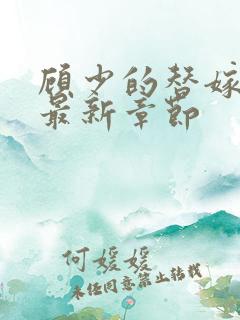 顾少的替嫁
最新章节
何媛媛
未经同意禁止转载